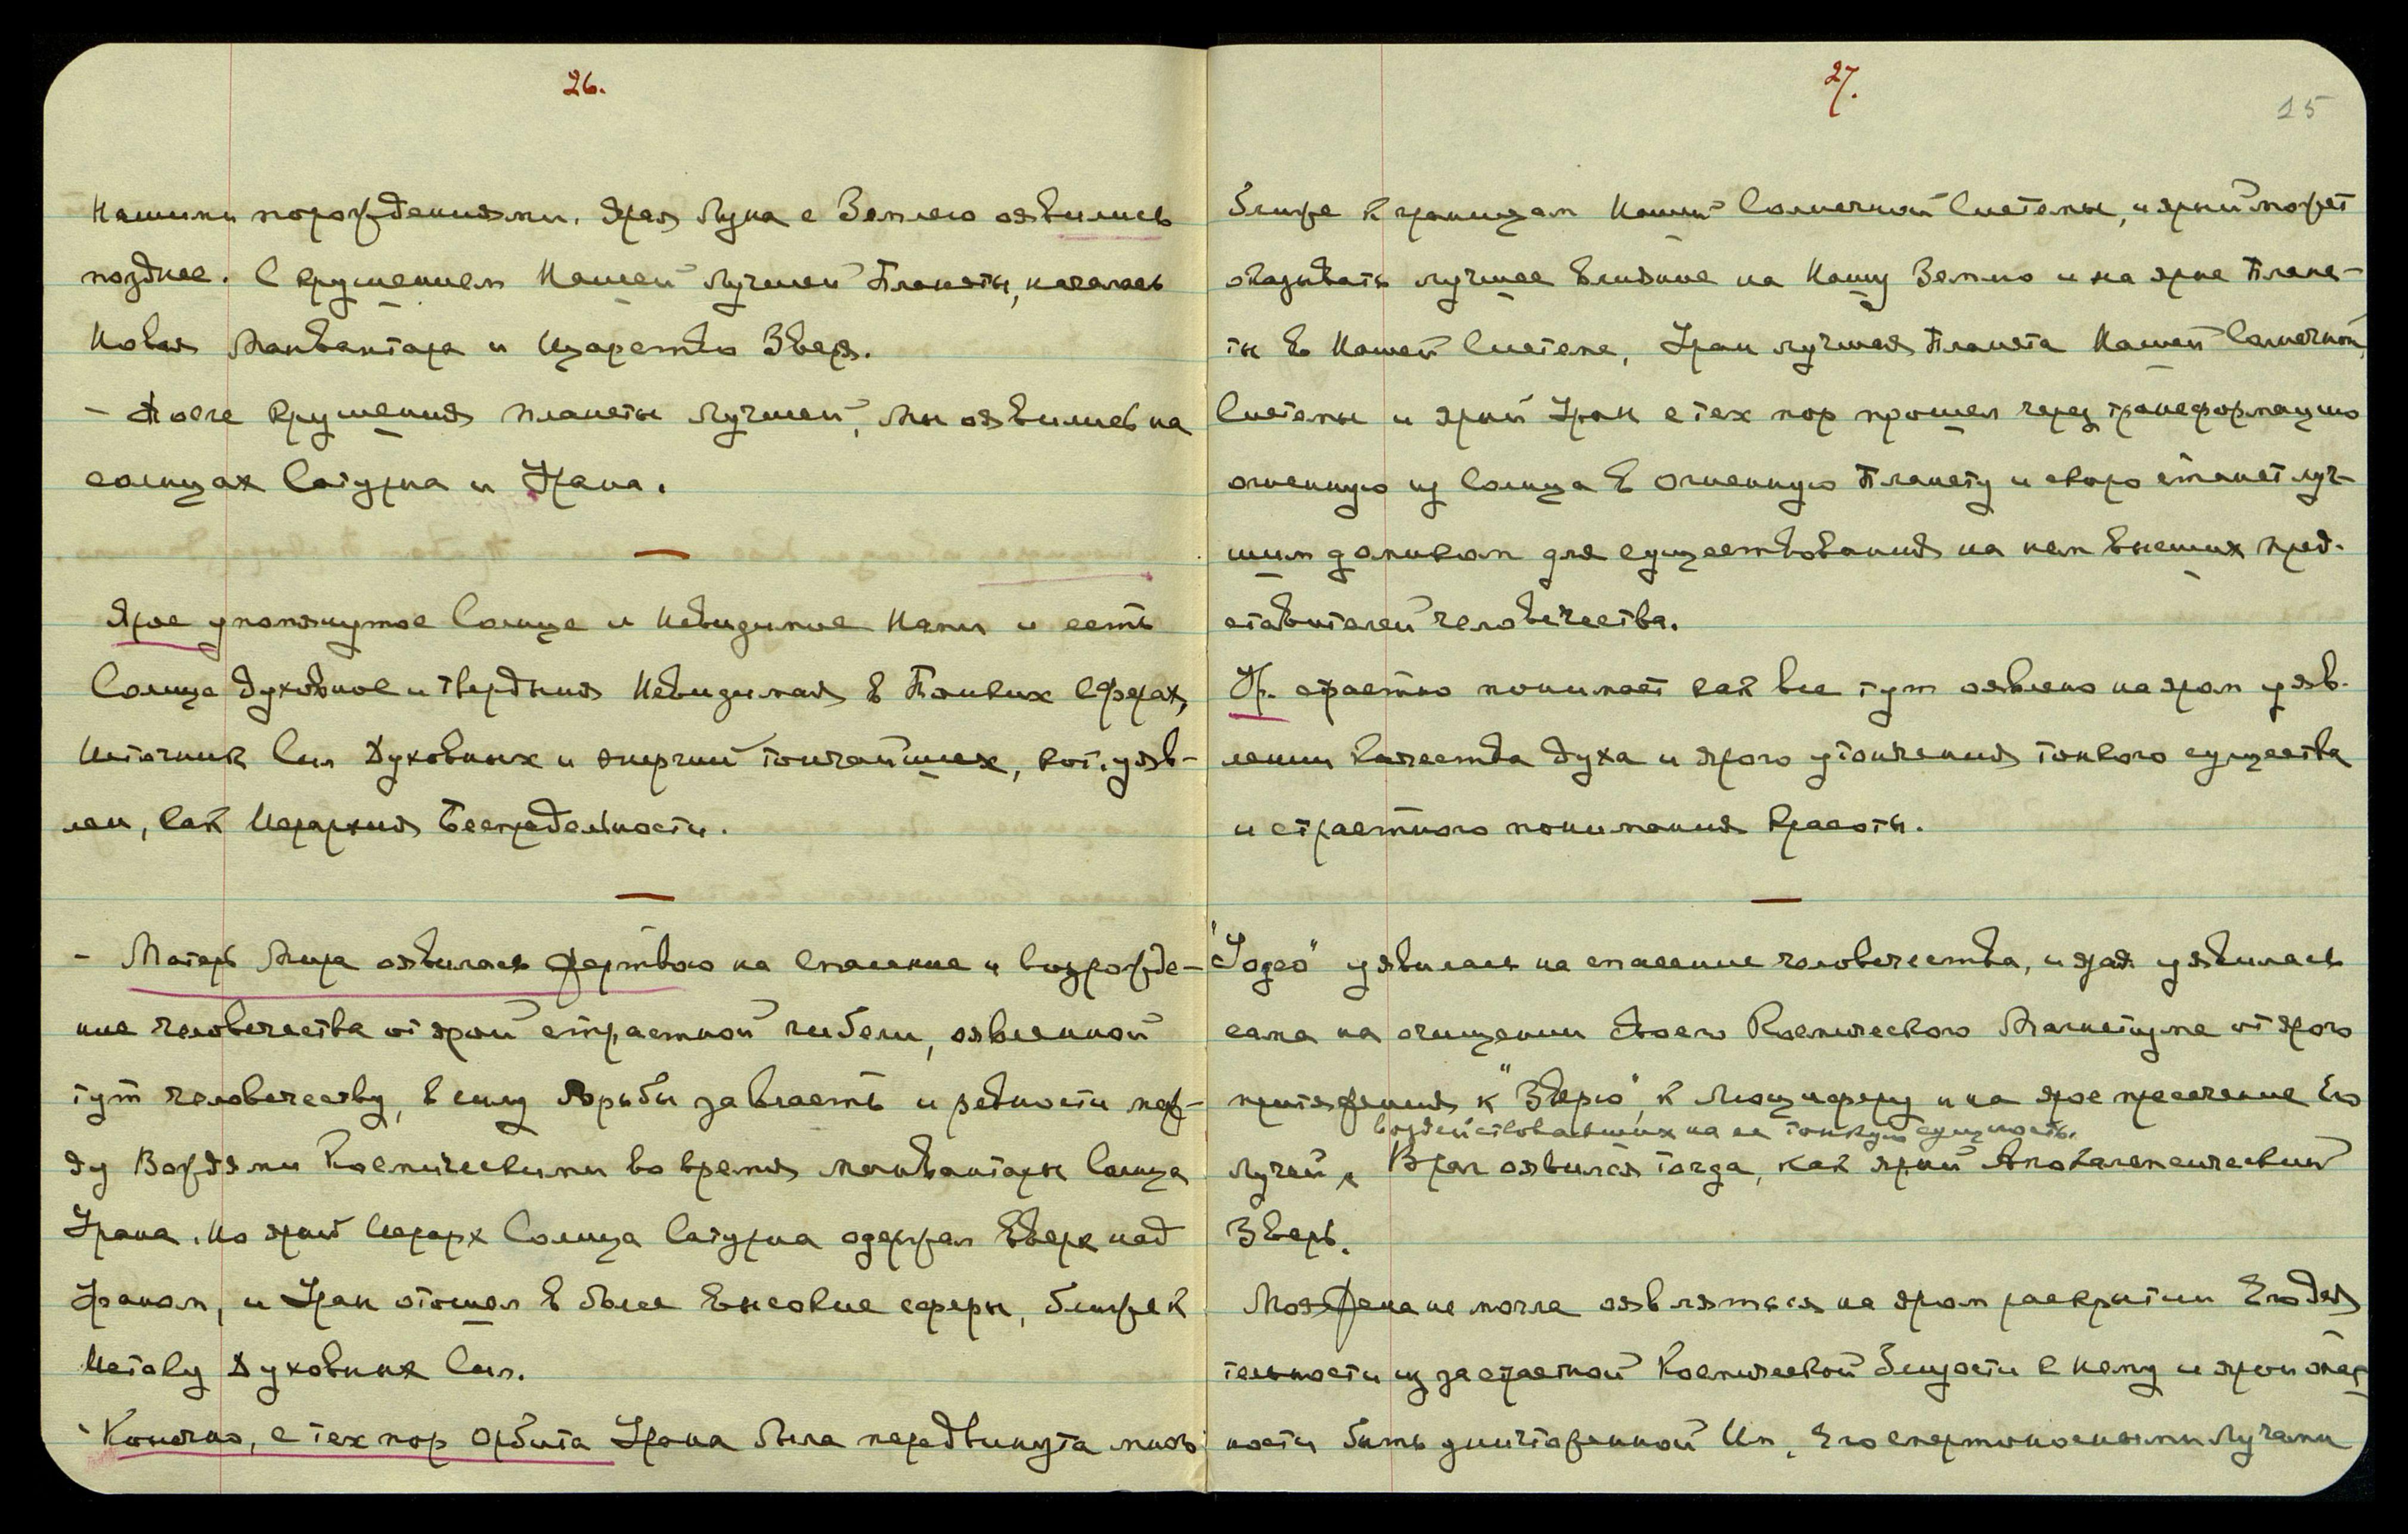 26.
Нашими порождениями. Ярая Луна с Землею оявились
позднее. С крушением Нашей Лучшей Планеты, началась
Новая Манвантара и Царство Зверя.
– После крушения планеты Лучшей, Мы оявились на
солнцах Сатурна и Урана.
Ярое упомянутое Солнце и Невидимое Нами и есть
Солнце духовное и твердыня Невидимая в Тонких Сферах,
Источник Сил Духовных и энергий тончайших, кот. уяв-
лен, как Иерархия Беспредельности.
– Матерь Мира оявилась жертвою на спасение и возрожде-
ние человечества от ярой страстной гибели, оявленной
тут человечеству, в силу борьбы за власть и ревности меж-
ду Вождями Космическими во время манвантары Солнца
Урана. Но ярый Иерарх Солнца Сатурна одержал вверх над
Ураном, и Уран отошел в более высокие сферы, ближе к
Истоку Духовных Сил.
Конечно, с тех пор орбита Урана была передвинута мно
27.
15
ближе к границам Нашей Солнечной Системы, и ярый может
оказывать лучшее влияние на Нашу Землю и на ярые Плане-
ты в Нашей Системе, Уран лучшая Планета Нашей Солнечной
Системы и ярый Уран с тех пор прошел через трансформацию
огненную из Солнца в Огненную Планету и скоро станет луч-
шим домиком для существования на нем высших пред-
ставителей человечества.
Ур. страстно понимает как все тут оявлено на яром уяв-
лении качества духа и ярого утончения тонкого существа
и страстного понимания Красоты.
уявилась на спасение человечества, и ярая уявилась
сама на очищении своего Космического Магнетизма от ярого
притяжения к "Зверю", к Люциферу и на ярое пресечение Его
воздействовавших на ее тонкую сущность.
лучей, Враг оявился тогда, как ярый Апокалепсический
Зверь.
Моя Жена не могла оявляться на яром раскрытии Его дея
тельности из за страстной Космической близости к Нему и ярой опас
ности быть уничтоженной Им, Его смертоносными Лучами